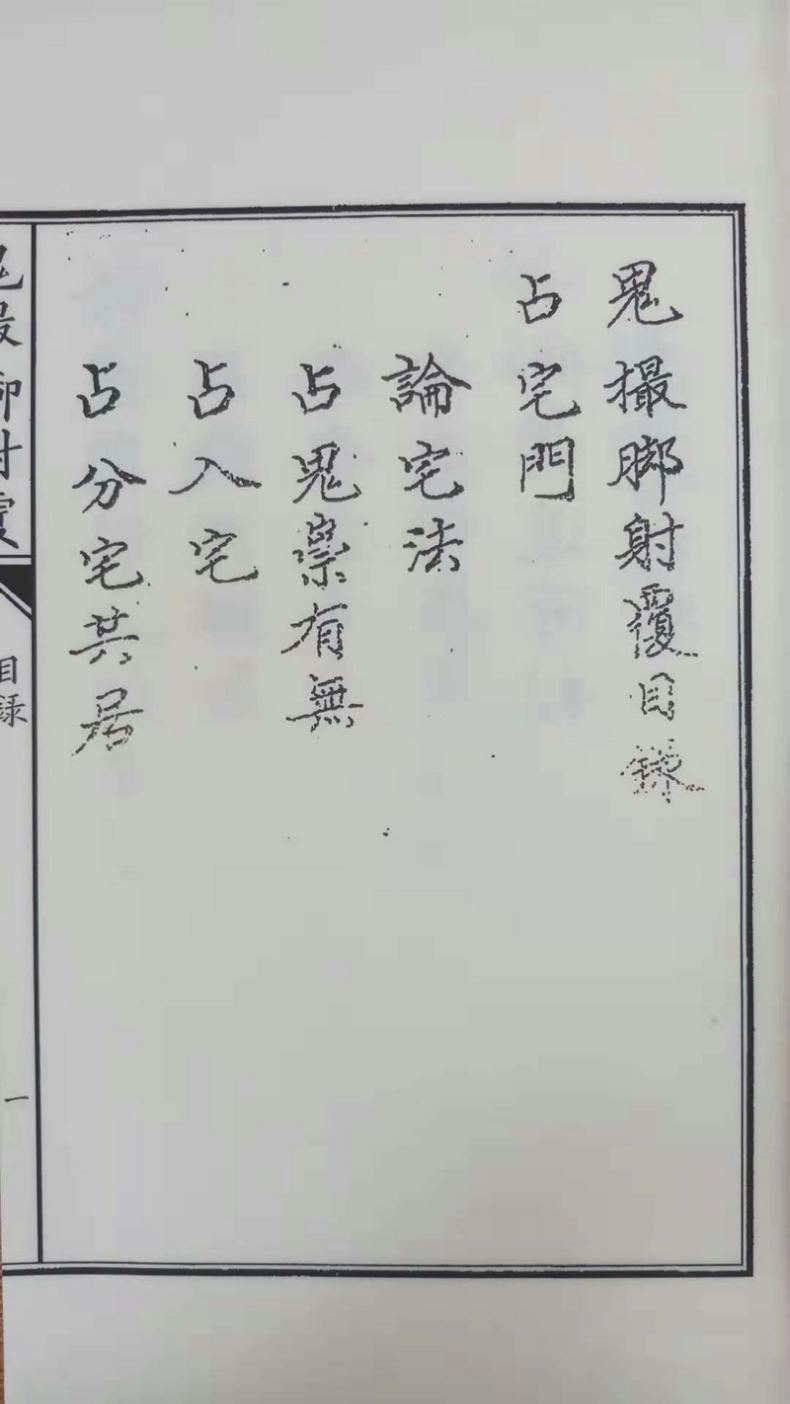 鬼撮脚射覆目録
占宅門
論宅法
占鬼祟有無
占入宅
占分宅共居
鬼撮脚射覆
目録
一